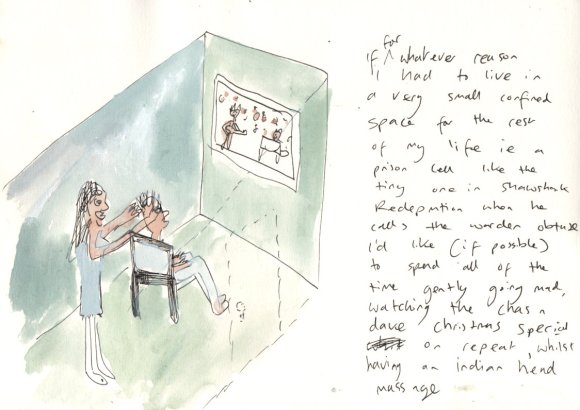 if for whatever reason
I had to live in
a very small confined
space for the rest
of my life ie a
prison cell like the
tiny one in Shawshank
Redemption when he
calls the warden obtuse
I'd like (if possible)
to spend all of the
time gently going mad,
watching the chas n
dave christmas special
on repeat, whilst
having an indian head
massage